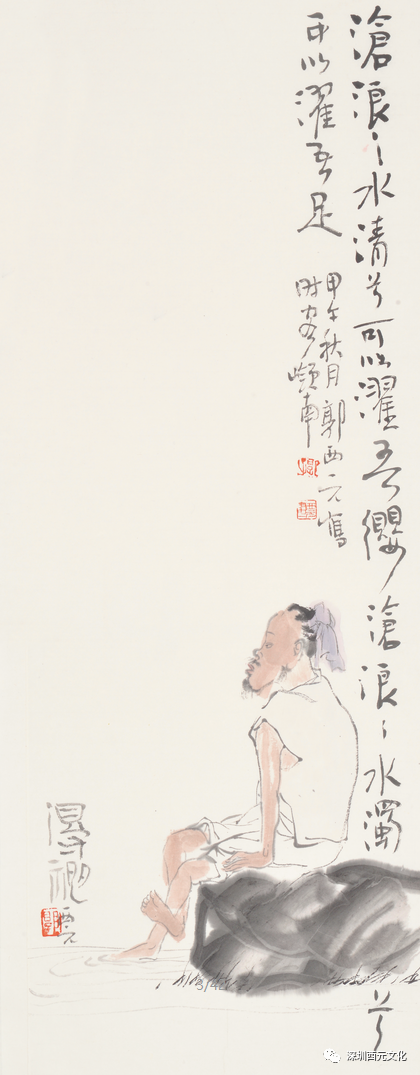 滄浪之水清兮可以濯吾纓滄浪之水濁兮
可以濯吾足
甲午秋月郭西元寫
时客嶺南
西元
深圳西元文化